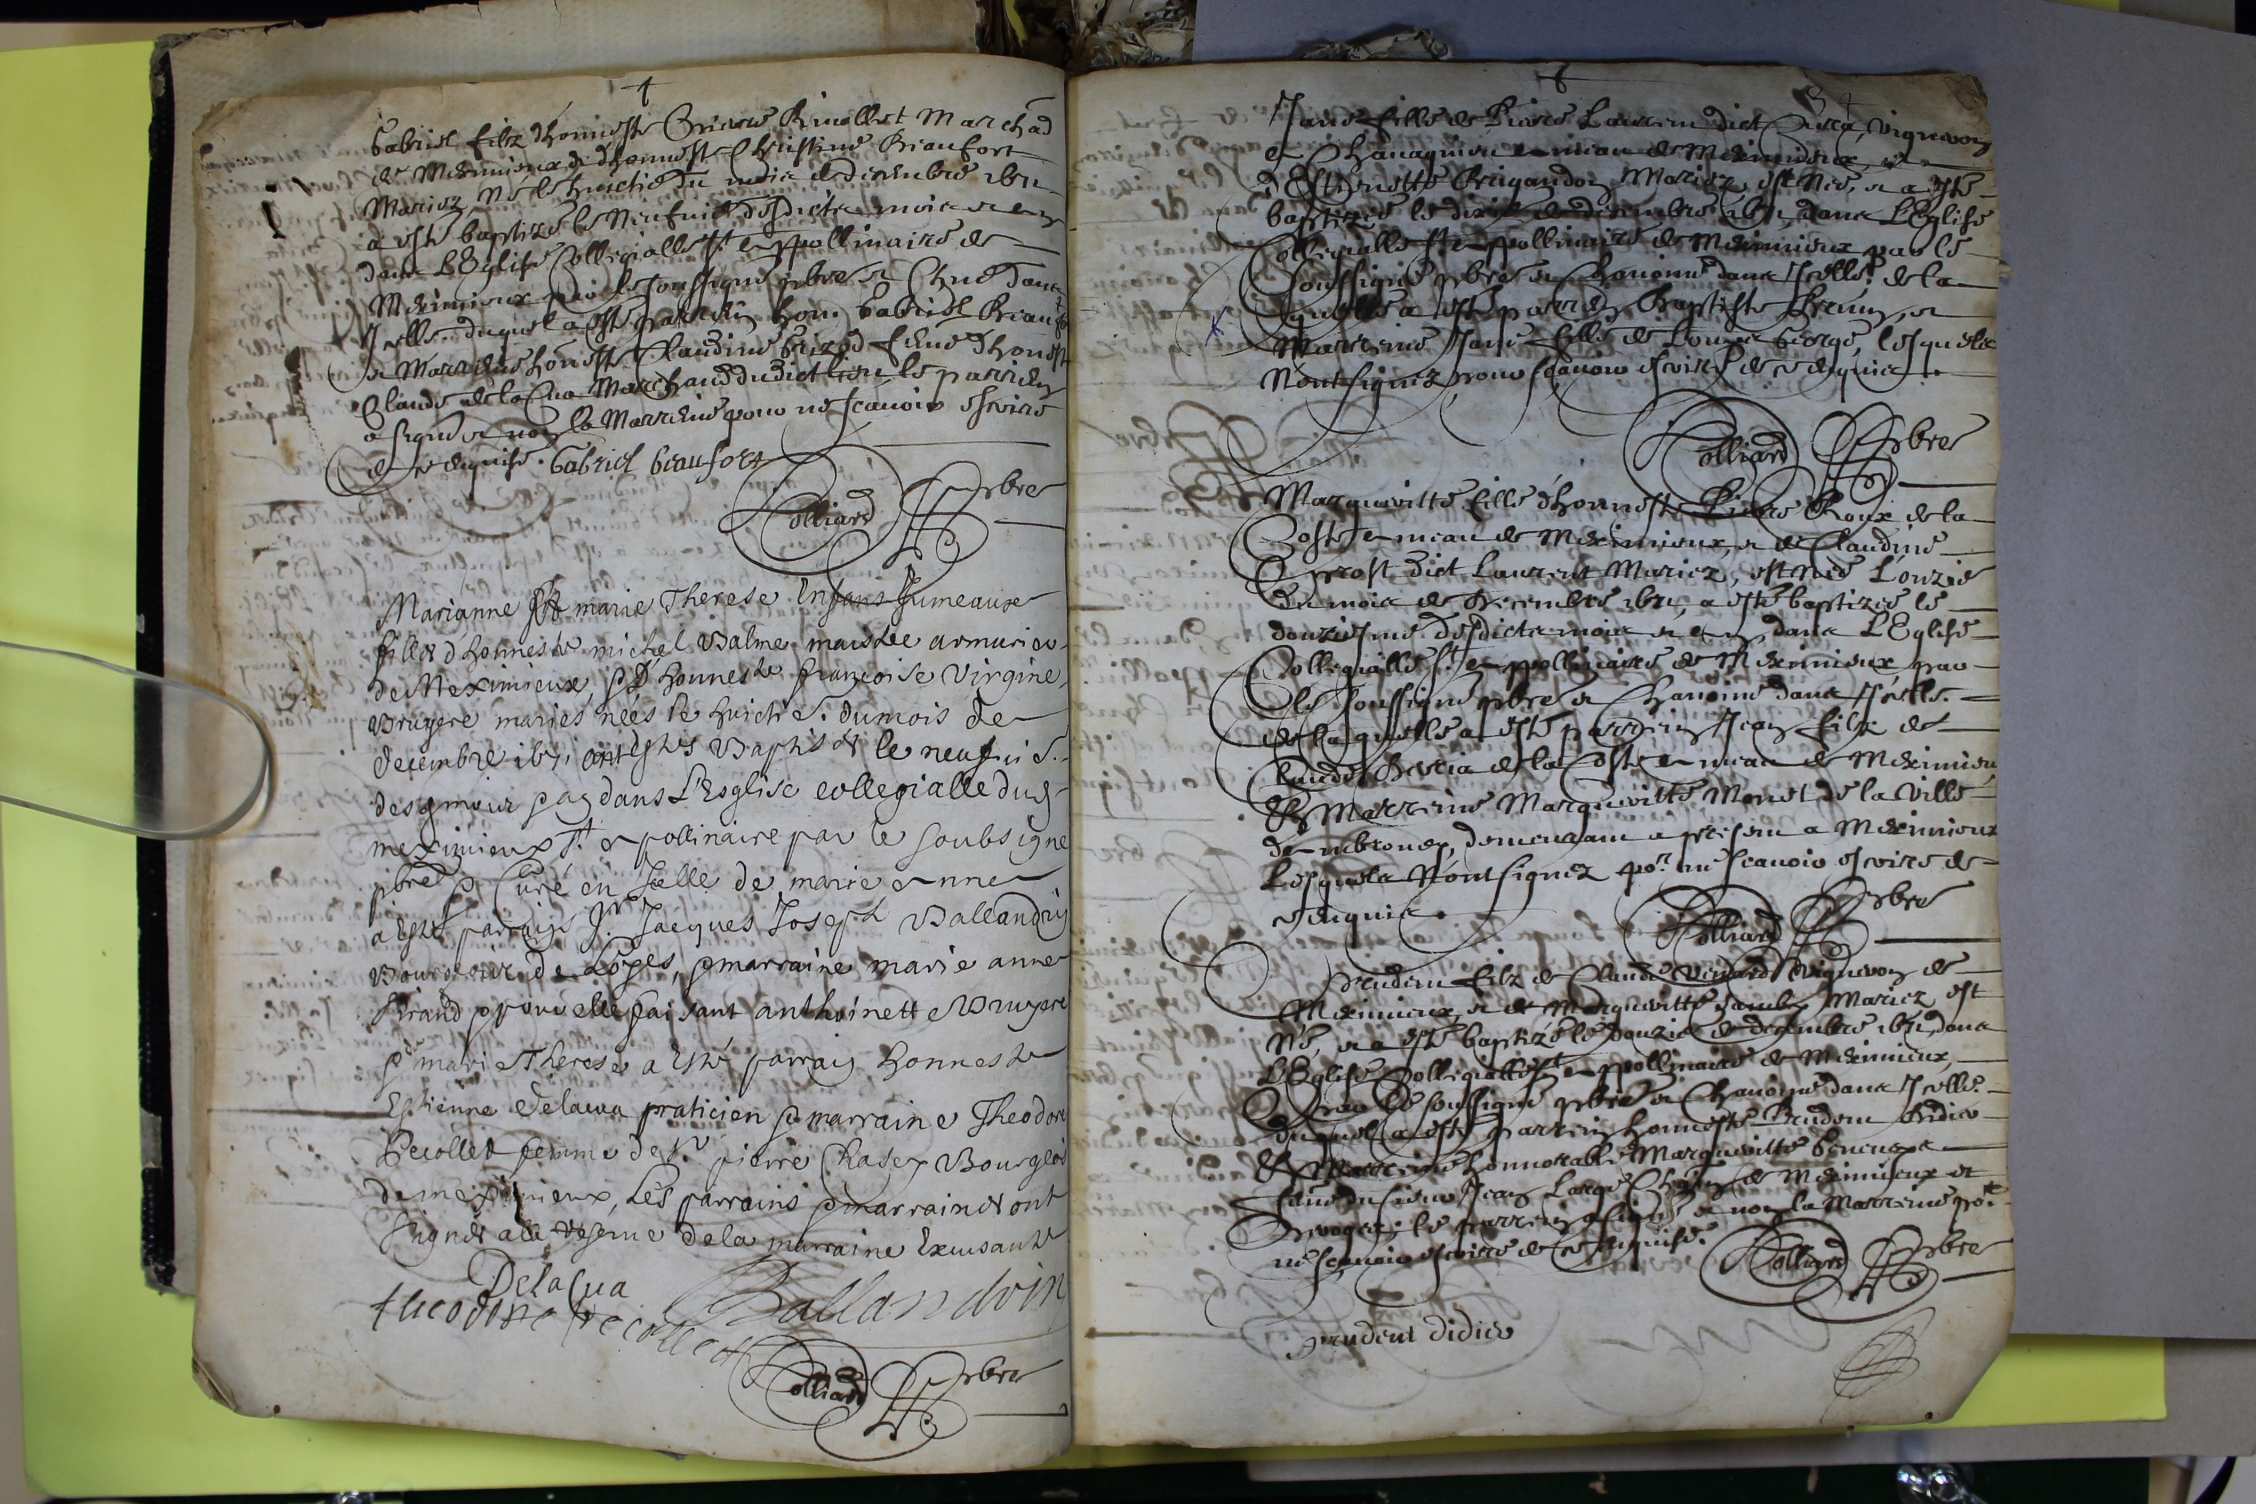 Gabriel filz d'honneste Pierre Marchãd
de Meximieux & d'honneste Christine Beaufort
Mariez, né le huictie du mois de decembre 1671
a esté baptizé le neufuie desdicts mois et an
dans L'Eglise Collegialle St Appollinaire de
Meximieux par le soussigné pbre et Curé dans
Icelle. duquel a esté parrein hon. Gabriel Beaufort
et Marreine honeste Claudine femme d'honest
Claude delaCua Marchand dudict lieu, le parrein
a signé et non la Marreine pour ne scauoir escrire
de ce enquise. Gabriel beaufort
Colliard pbre
Marianne & marie Therese Enfans Jumeaux
filles d'honneste michel Balme maistre armurier
de Meximieux, & d'honneste françoise Virgine
Bruyere mariés nées le huictie. du mois de
decembre 1671 ont estés Baptisés le neufuie.
des & mois & an dans L'Esglise collegialle dud
meximieux St Appollinaire par le soubsigne
pbre & Curé en Icelle de marie Anne
a esté parrain Sr. Jacques Joseph Ballandrin
Bourgeois de & marraine marie anne
& pour elle faisant anthoinette Bruyere
& de marie Therese a esté parrain honneste
Estienne Delacua praticien & marraine Theodore
Recollet femme de Sr. pierre Chasey Bourgeois
de meximieux, Les parrains & marraines ont
signés a la reserue de la marraine Excusante
DelaCua
theodore recollet Ballandrin
Colliard pbre
Jane fille de Pierre Laurens dict Vigneron
a Chauagnieu Ameau de Meximieux, et
d'Estienette Brigandon Mariez, est Née, et a esté
baptizée le dixie de decembre 1671, dans L'Eglise
Collegialle St Appollinaire de Meximieux par le
soussigné pbre et Chanoine dans Icelle. de la
quelle a esté parrein Baptiste et
Marreine Jane fille de Louys George, lesquels
N'ont signez pour scauoir escrire de ce enquis.
Colliard pbre
Margueritte fille d'honneste Pierre Roux de la
Coste Ameau de Meximieux, et de Claudine
prost dict Laurent Mariez, est Née L'onzie
du mois de Decembre 1671, a esté baptizée le
douziesme desdicts mois et an, dans L'Eglise
Collegialle St Appollinaire de Meximieux par
le soussigné pbre et Chanoine dans Icelle.
de laquelle a esté parrein Jean filz de
Claude de la Coste Ameau de Meximieu
Et Marreine Margueritte Monet de la Ville
d'Ambronex, demeurant a present a Meximieux
Lesquels N'ont signez por. ne scauoir escrire de
ce enquis.
Colliard pbre
Prudent filz de Claude Vigneron de
Meximieux, et de Margueritte Mariez est
Né, et a esté baptizé le douzie de decembre 1671, dans
L'Eglise Collegialle St Appollinaire de Meximieux,
par le soussigné pbre et Chanoine dans Icelle.
duquel a esté parrein honneste Prudent Didier
Et Marreine honnorable Margueritte
femme du sieur Jean de Meximieux et
le parrein a signé et non la Marreine por.
ne scauoir escrire de ce enquise.
Colliard pbre
prudent didier